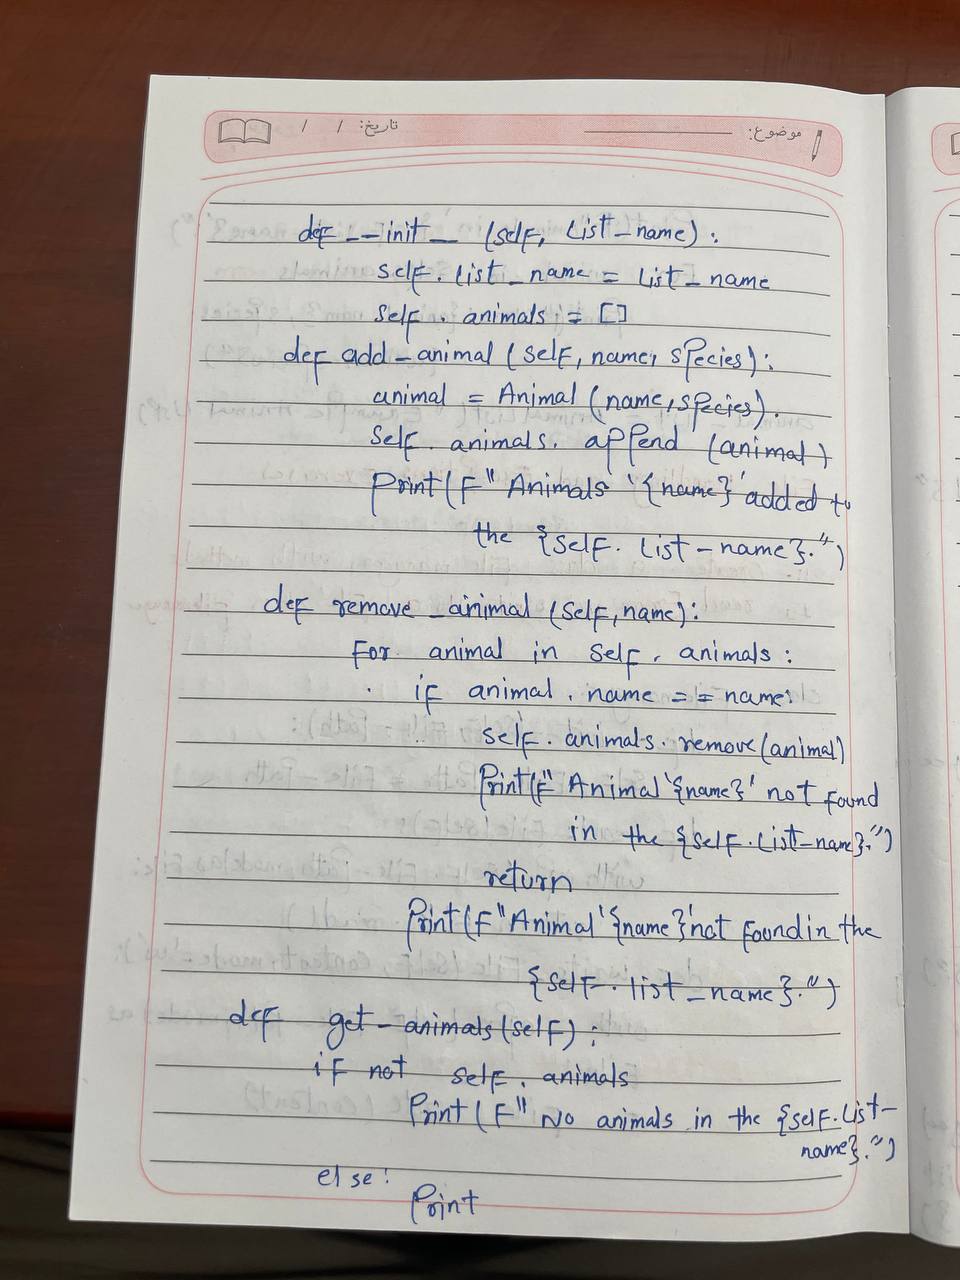 موضوع: تاریخ: / /
def __init__ (self, list_name):
self.list_name = list_name
self.animals = []
def add_animal (self, name, species):
animal = Animal (name, species).
self.animals.append (animal)
Print(F" Animals '{name}' added to
the {self.list_name}.")
def remove_animal (self, name):
For animal in self.animals:
if animal.name == name:
self.animals.remove(animal)
Print(F" Animal '{name}' not found
in the {self.list_name}.")
return
Print(F"Animal '{name}' not found in the
{self.list_name}.")
def get_animals(self):
if not self.animals
Print(F" No animals in the {self.list_
name}.")
else:
Print